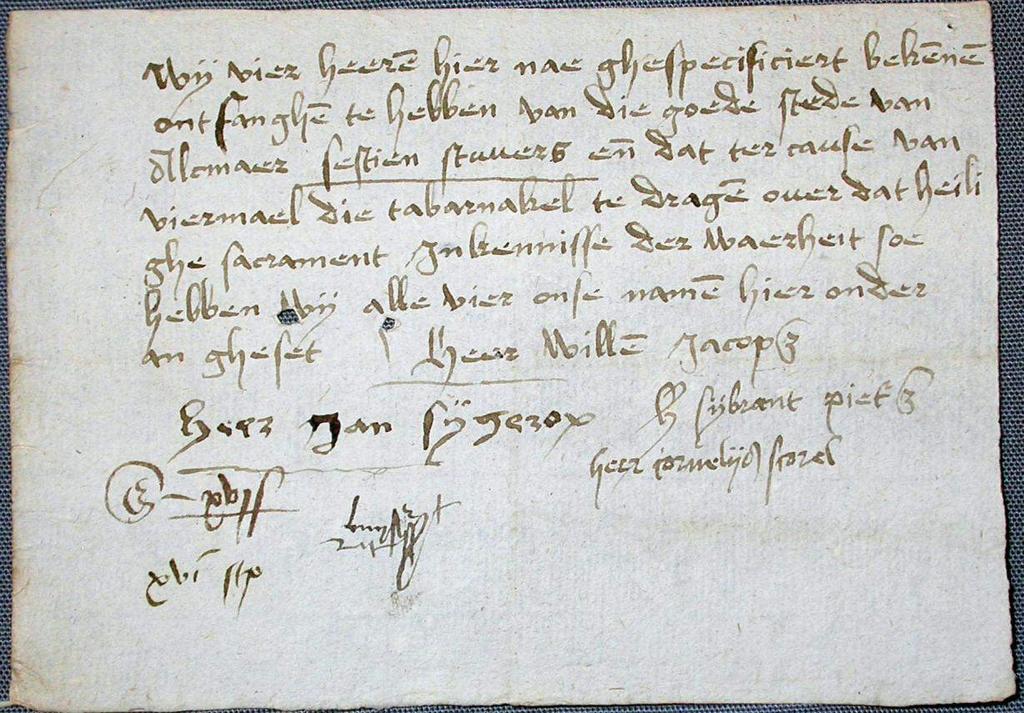 Wij vier heerē hier nae ghespecificiert bekēnē
ontfanghē te hebben van die goede stede van
Allcmaer sestien stuuers eñ dat ter cause van
viermael die tabarnakel te dragē ouer dat heili
ghe sacrament Inkennisse der waerheit soe
hebben wij alle vier onse namē hier onder
an gheset Heer Willē Jacopz
heer Jan sijgerox H sijbrant pietz
heer cornelijs scorel
xvi st